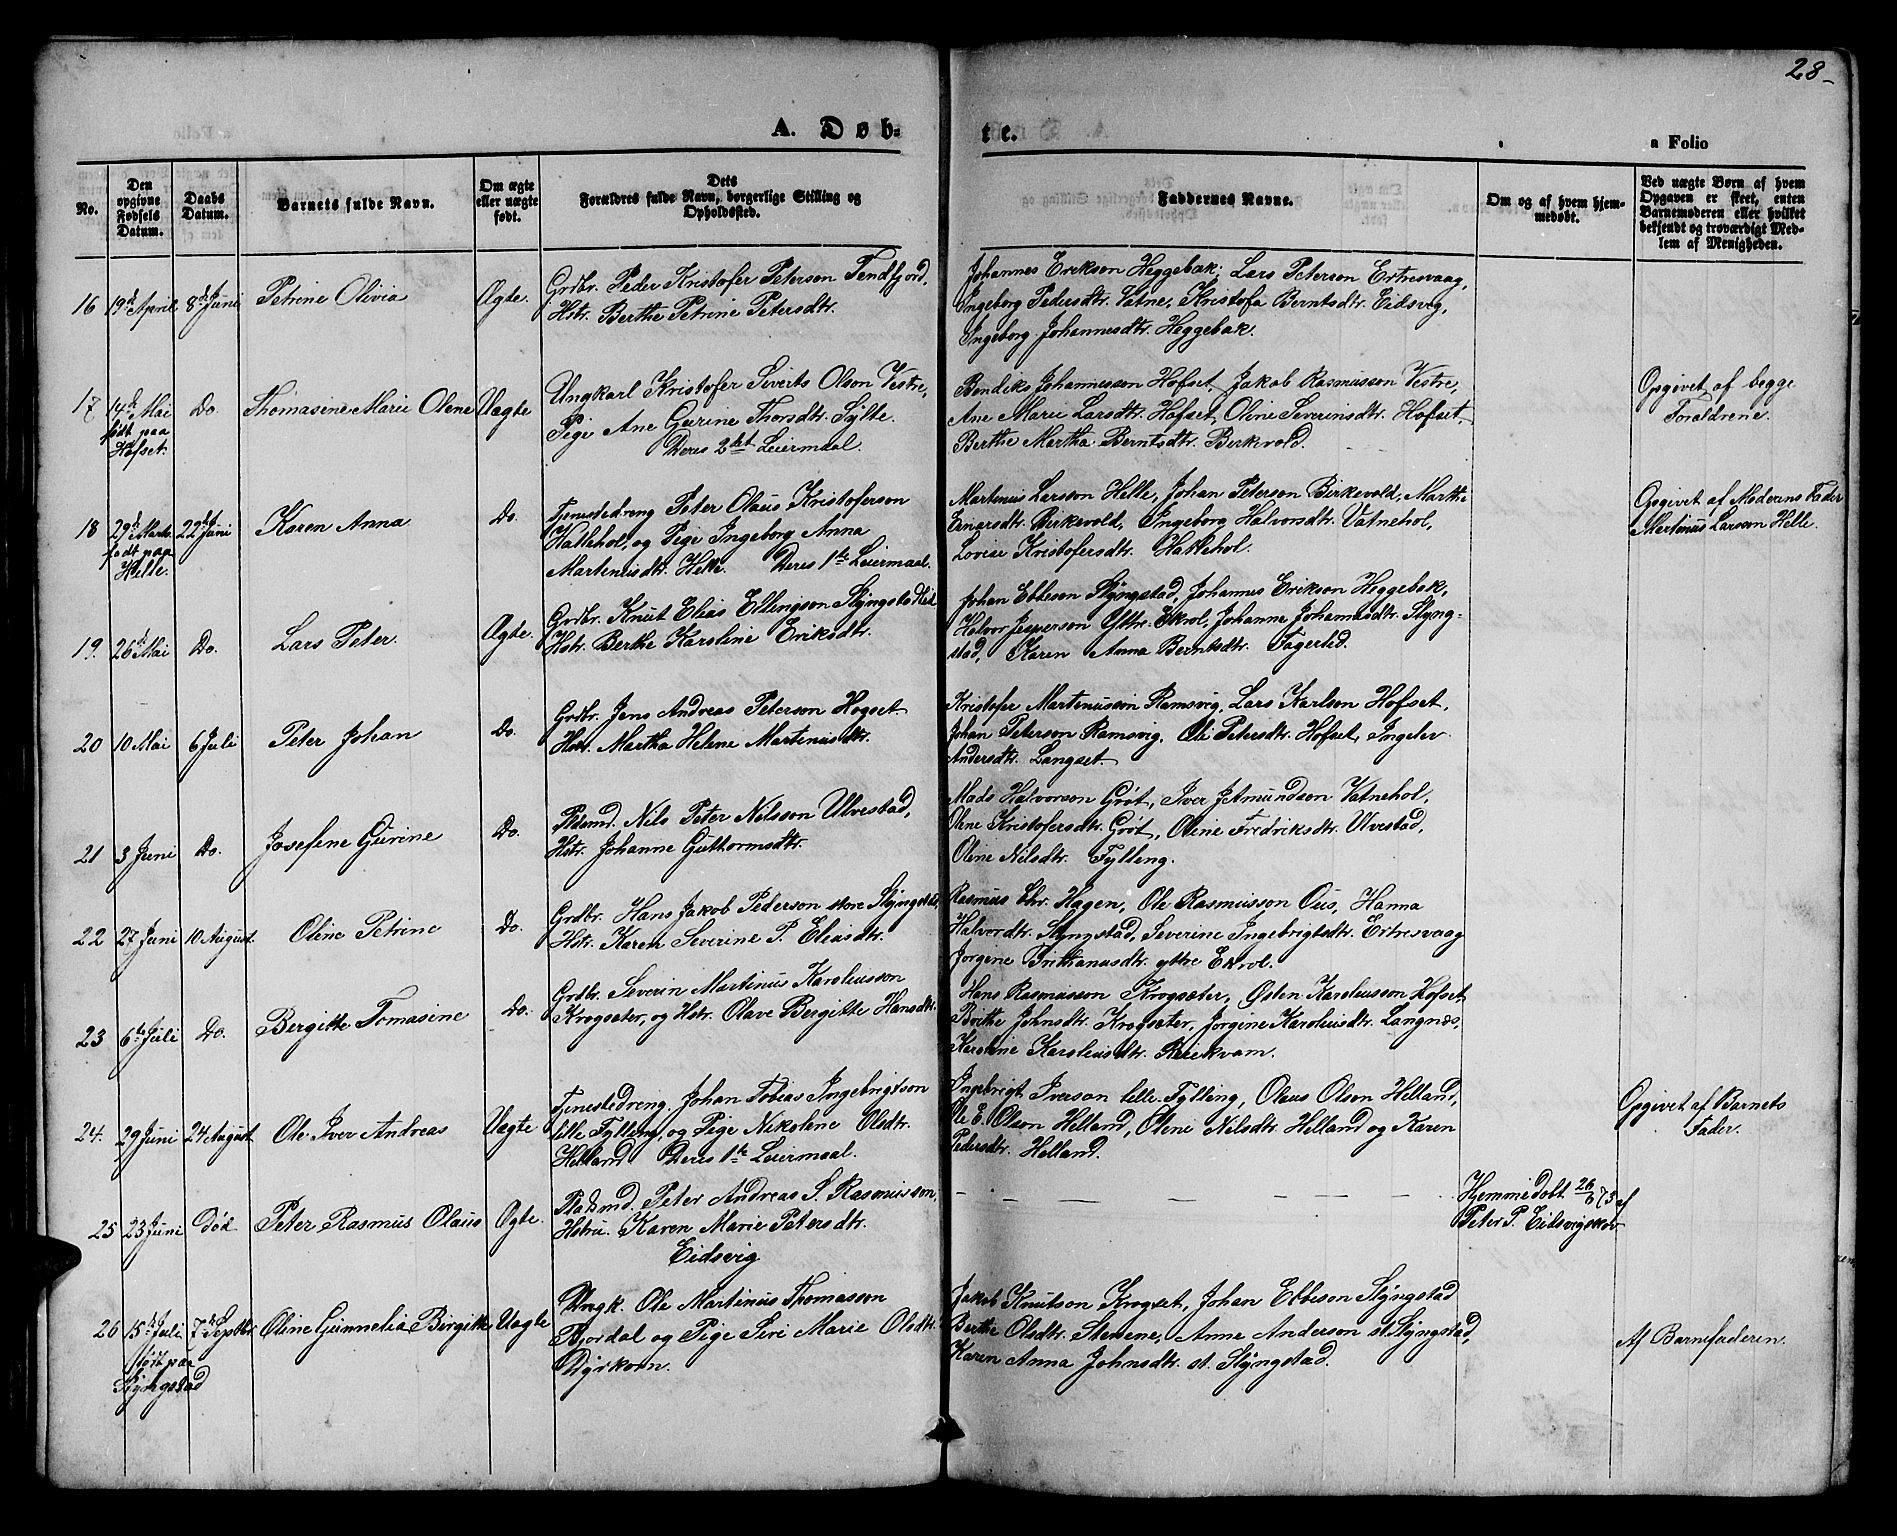 28-
A. Døb-
te.
a Folio
No.
Den opgivne Fødsels Datum.
Daabs Datum.
Barnets fulde Navn.
Om ægte eller uægte født.
Dets Forældres fulde Navn, borgerlige Stilling og Opholdssted.
Faddernes Navne.
Om og af hvem hjemmedøbt.
Ved uægte Børn af hvem Opgaven er skeet, enten Barnemoderen eller hvilket bekjendt og troværdigt Medlem af Menigheden.
16 19de April 8de Juni Petrine Olivia Ægte.
Grdbr. Peder Kristofer Peterson Tendfjord,
Hstr. Berthe Petrine Petersdtr.
Johannes Erikson Heggebak, Lars Peterson Ertresvaag,
Ingeborg Pedersdtr. Vatne, Kristofa Berntsdtr. Eidsvig,
Ingeborg Johannesdtr. Heggebak.
17 14de Mai Do. Thomasine Marie Olene Uægte
født paa
Hofset.
Ungkarl Kristofer Siverts Olson Vestre,
Pige Ane Gurine Thorsdtr. Sylte.
Deres 2det Leiermaal.
Bendiks Johannesson Hofset, Jakob Rasmusson Vestre,
Ane Marie Larsdtr. Hofset, Oline Severinsdtr. Hofset,
Berthe Martha Berntsdtr. Birkevold.
Opgivet af begge
Forældrene.
18 29de Marts 22det Juni Karen Anna Do.
født paa
Helle.
Tjenestedreng Peter Olaus Kristoferson
Hallehol, og Pige Ingeborg Anna
Martinusdtr. Helle. Deres 1ste Leiermaal.
Martinus Larson Helle, Johan Peterson Birkevold, Marthe
Ernarsdtr. Birkevold, Ingeborg Halvorsdtr. Vatnehol,
Lovise Kristofersdtr. Hattehol.
Opgivet af Moderens Fader
Martinus Larson Helle.
19. 26de Mai Do. Lars Peter. Ægte.
Grdbr. Knut Elias Ellingson Slyngstadlid
Hstr. Berthe Karoline Eriksdtr.
Johan Ebbeson Slyngstad, Johannes Erikson Heggebak,
Halvor Jesperson Yttre-Ekrol, Johanne Johannesdtr. Slyng-
stad, Karen Anna Berntsdtr. Fagerlid.
20 10 Mai 6 Juli Peter Johan Do.
Grdbr. Jens Andreas Peterson Hogset
Hstr. Martha Helene Martinusdtr.
Kristofer Martinusson Ramsvig, Lars Karlson Hofset,
Johan Peterson Ramsvig, Ole Petersdtr. Hofset, Ingelev
Andersdtr. Langset.
21 3 Juni Do. Josefine Gurine Do.
Pladsmd. Nils Peter Nilsson Ulvestad,
Hstr. Johanne Guttormsdtr.
Mads Halvorson Grøt, Iver Jetmundson Vatnehol,
Oline Kristofersdtr. Grøt, Oline Fredriksdtr. Ulvestad,
Oline Nilsdtr. Fylling.
22 27 Juni 10 August Oline Petrine Do.
Grdbr. Hans Jakob Pederson store Slyngstad,
Hstr. Karen Severine P. Eliasdtr.
Rasmus Chr. Hagen, Ole Rasmusson Ous, Hanna
Halvordtr. Slyngstad, Severine Ingebrigtsdtr. Ertresvaag
Jorgene Trithanusdtr. yttre Ekrol.
23 6te Juli Do. Bergitte Tomasine Do.
Grdbr. Severin Martinus Karoliusson
Krogsæter, og Hstr. Olave Bergitte Hansdtr.
Hans Rasmusson Krogsæter, Østen Karoliusson Hofset
Brithe Johnsdtr. Krogsæter, Jorgine Karoliusdtr. Langnæs,
Karoline Karoliusdtr. Reiekvam.
24. 29 Juni 24 August Ole Iver Andreas Uægte
Tjenestedreng. Johan Tobias Ingebrigtson
lille Fylling, og Pige Nikoline Olsdtr.
Helland Deres 1te Leiermaal.
Ingebrigt Iverson lille-Fylling, Olaus Olson Helland,
Ole E. Olson Helland, Oline Nilsdtr. Helland og Karen
Pedersdtr. Helland.
Opgivet af Barnets
Fader.
25 23 Juni Død Peter Rasmus Olaus Ægte.
Pladsmd. Peter Andreas S. Rasmusson,
Hstru. Karen Marie Petersdtr.
Eidsvig
Hjemmedøbt 26/6 73 af
Peter P. Eidsvigskor
26 15de Juli 7de Septbr. Oline Gunnelia Bergitte Uægte
født paa
Slyngstad
Ungk. Ole Martinus Thomasson
Bjordal og Pige Siri Marie Olsdtr.
Dyrkorn.
Jakob Knutson Krogset, Johan Ebbeson Slyngstad
Berthe Olsdtr. Stensene, Anne Anderson st. Slyngstad,
Karen Anna Johnsdtr. st. Slyngstad.
Af Barnefaderen.